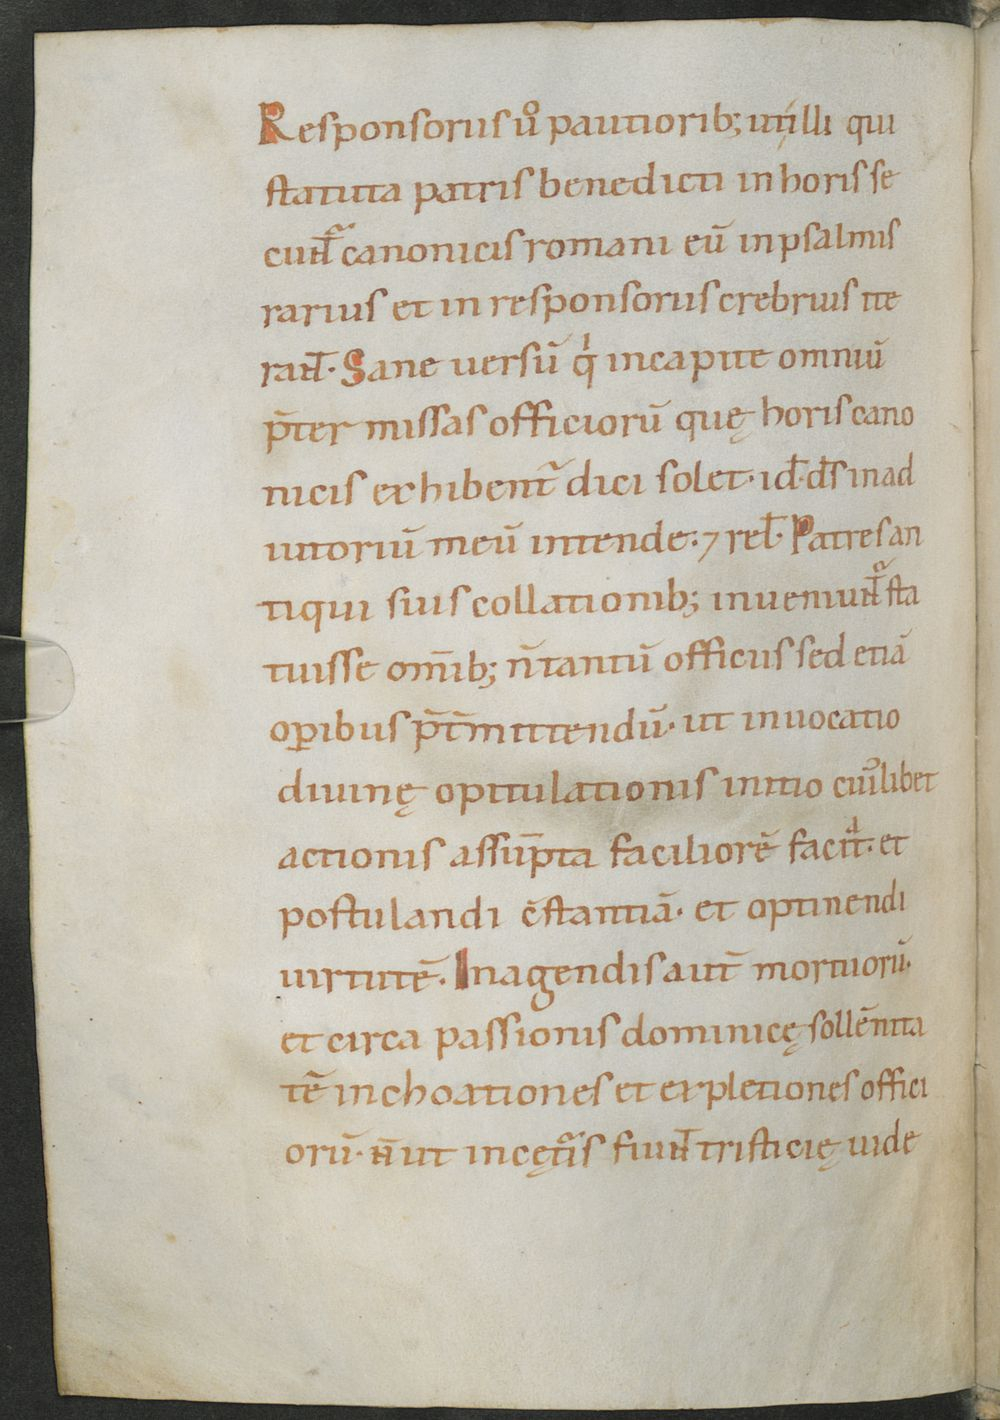 Responsoriis ů pautiorib; ut illi qui
statuta patris benedicti in horis se
cunt̄ canonicis romani eū in psalmis
rarius et in responsoriis crebrius ite
rant̄. Sane uersū qͥ in capite omniū
p̄ter missas officiorū quę horis cano
nicis exhibent᷑ dici solet. id̄. d̄s in ad
iutoriū meū intende: ⁊ rel̄. Patres an
tiqui suis collationib; inueniunt᷑ sta
tuisse om̄ib; n̄ tantū officiis sed etiā
oꝑibus p̄t̄mittendū. ut inuocatio
diuinę opitulationis initio cuiꝰlibet
actionis assūpta faciliorē faciat. et
postulandi c̄stantiā. et optinendi
uirtutē. In agendis aut̄ mortuorū.
et circa passionis dominicę sollēnita
tē inchoationes et expletiones offici
orū. n̄ ut in cęt̄is fiunt̄ tristicię uide